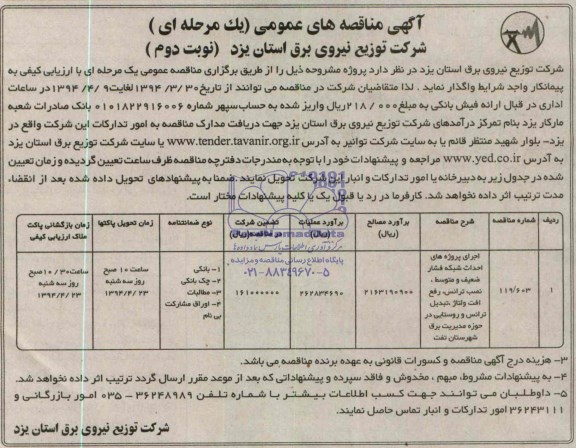 آگهی مناقصه های عمومی (یك مرحله ای )
شرکت توزیع نیروی برق استان یزد (نوبت دوم )
شرکت توزیع نیروی برق استان یزد در نظر دارد پروژه مشروحه ذیل را از طریق برگزاری مناقصه عمومی یک مرحله ای با ارزیابی کیفی به
پیمانکار واجد شرایط واگذار نماید . لذا متقاضیان شرکت در مناقصه می توانند از تاریخ ۱۳۹۴/۳/۳۰ لغایت ۱۳۹۴/۴/۹ در ساعات
اداری در قبال ارائه فیش بانکی به مبلغ ۲۱۸/۰۰۰ ریال واریز شده به حساب سپهر شماره ۰۱۰۱۸۲۲۹۱۶۰۰۶ بانک صادرات شعبه
مارکار یزد بنام تمرکز درآمدهای شرکت توزیع نیروی برق استان یزد جهت دریافت مدارک مناقصه به امور تدارکات این شرکت واقع در
یزد- بلوار شهید منتظر قائم یا به سایت شرکت توانیر به آدرس www.tender.tavanir.org.ir یا سایت شرکت توزیع برق استان یزد
به آدرس www.yed.co.ir مراجعه و پیشنهادات خود را با توجه به مندرجات دفترچه مناقصه ظرف ساعت تعیین گردیده و زمان تعیین
شده در جدول زیر به دبیرخانه یا امور تدارکات و انبار این شرکت تحویل نمایند. ضمنا به پیشنهادهای تحویل داده شده بعد از انقضاء،
مدت ترتیب اثر داده نخواهد شد. کارفرما در رد یا قبول یک یا کلیه پیشنهادات مختار است.
ردیف شماره مناقصه شرح مناقصه برآورد مصالح (ریال) برآورد عملیات (ریال) تضمین شرکت در مناقصه (ریال) نوع ضمانتنامه زمان تحویل پاکتها زمان بازگشائی پاکت ملاک ارزیابی کیفی
۱ ۱۱۹/۶۰۳ اجرای پروژه های احداث شبکه فشار ضعیف و متوسط ، نصب ترانس، رفع افت ولتاژ ،تبدیل ترانس و روستایی در حوزه مدیریت برق شهرستان تفت ۲۱۶۳۱۹۰۹۰۰ ۲۶۲۸۳۴۶۹۰ ۱۶۱۰۰۰۰۰۰ ۱- بانکی ۲- چک بانکی ۳- مطالبات ۴- اوراق مشارکت بی نام ساعت ۱۰ صبح روز سه شنبه ۱۳۹۴/۴/۲۳ ساعت ۱۰/۳۰ صبح روز سه شنبه ۱۳۹۴/۴/۲۳
پایگاه اطلاع رسانی مناقصه و مزایده
۰۲۱-۸۸۳۴۹۶۷۰-۵
۳- هزینه درج آگهی مناقصه و کسورات قانونی به عهده برنده مناقصه می باشد.
۴- به پیشنهادات مشروط، مبهم ، مخدوش و فاقد سپرده و پیشنهاداتی که بعد از موعد مقرر ارسال گردد ترتیب اثر داده نخواهد شد.
۵- داوطلبان می توانند جهت کسب اطلاعات بیشتر با شماره تلفن ۳۶۲۴۸۹۸۹ - ۰۳۵ امور بازرگانی و
۳۶۲۴۳۱۱۱ امور تدارکات و انبار تماس حاصل نمایند.
شرکت توزیع نیروی برق استان یزد